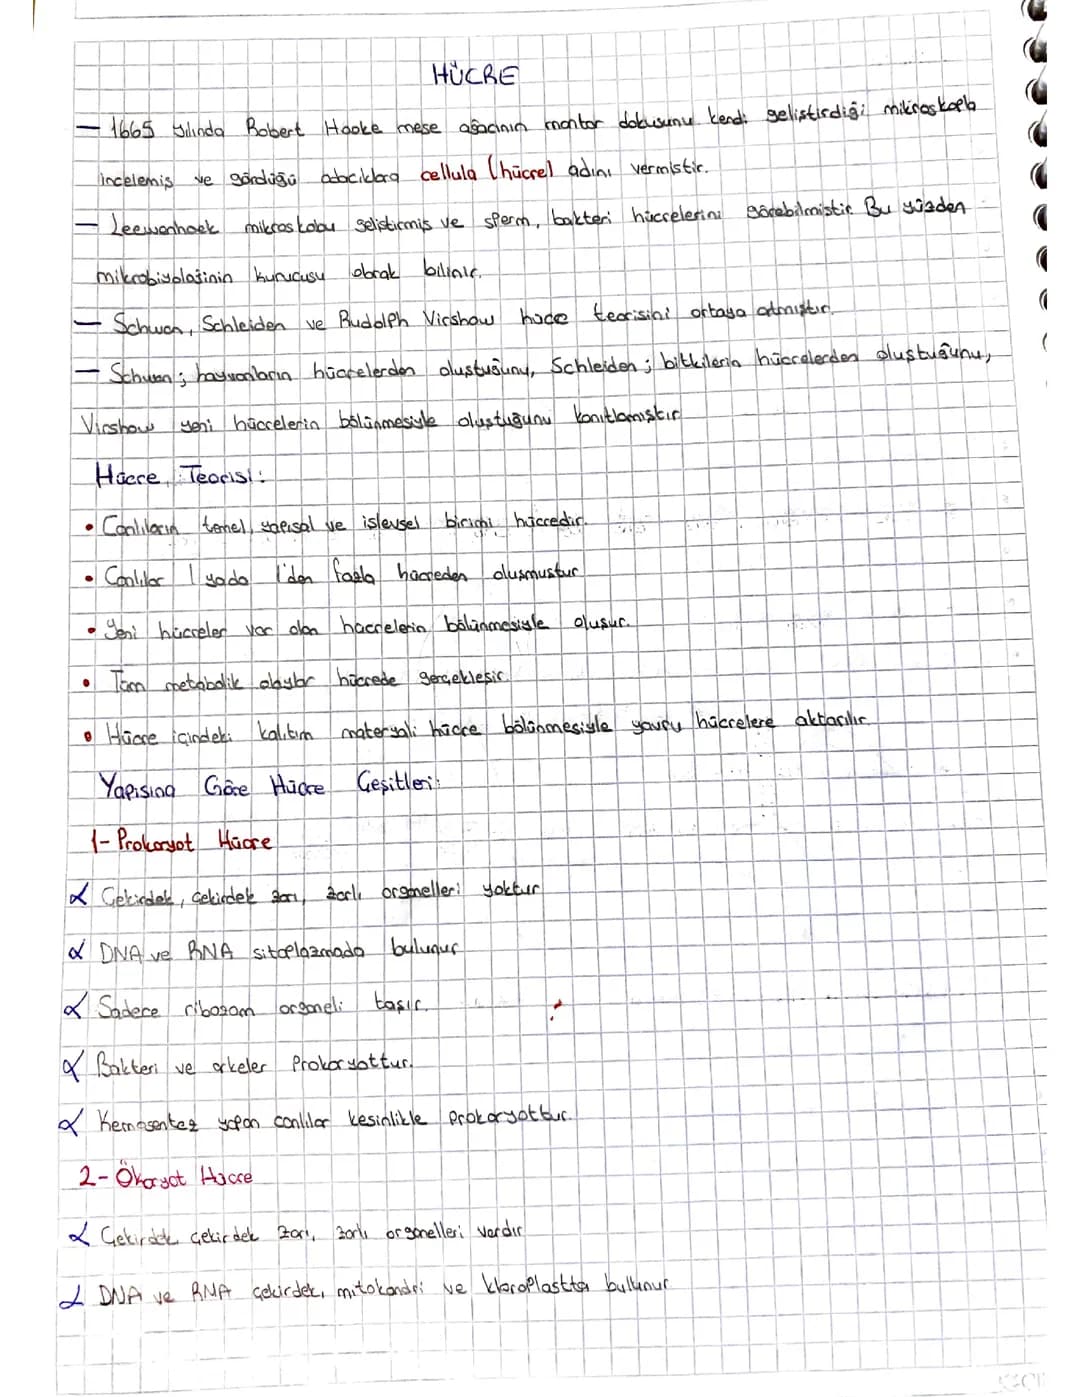 HÜCRE
— 1665 yılında Robert Hooke meşe ağacının mantar dokusunu kendi geliştirdiği mikroskopla
incelemiş ve gördüğü odacıklara cellula (hücre) adını vermiştir.
— Leewenhoek mikroskobu geliştirmiş ve sperm, bakteri hücrelerini görebilmiştir. Bu yüzden
mikrobiyolojinin kurucusu olarak bilinir.
— Schwan, Schleiden ve Rudolph Virshow hücre teorisini ortaya atmıştır.
— Schwan; hayvanların hücrelerden oluştuğunu, Schleiden; bitkilerin hücrelerden oluştuğunu,
Virshow yeni hücrelerin bölünmesiyle oluştuğunu kanıtlamıştır
Hücre Teorisi:
• Canlıların temel, yapısal ve işlevsel birimi hücredir.
• Canlılar 1 yada 1'den fazla hücreden oluşmuştur
• Yeni hücreler var olan hücrelerin bölünmesiyle oluşur.
• Tüm metabolik olaylar hücrede gerçekleşir.
• Hücre içindeki kalıtım materyali hücre bölünmesiyle yavru hücrelere aktarılır.
Yapısına Göre Hücre Çeşitleri:
1- Prokaryot Hücre
α Çekirdek, çekirdek zarı, zarlı organelleri yoktur
α DNA ve RNA sitoplazmada bulunur
α Sadece ribozom organeli taşır.
α Bakteri ve arkeler Prokaryottur.
α Kemosentez yapan canlılar kesinlikle prokaryottur.
2- Ökaryot Hücre
α Çekirdek çekirdek zarı, zarlı organelleri vardır
α DNA ve RNA çekirdek, mitokondri ve kloroplastta bulunur